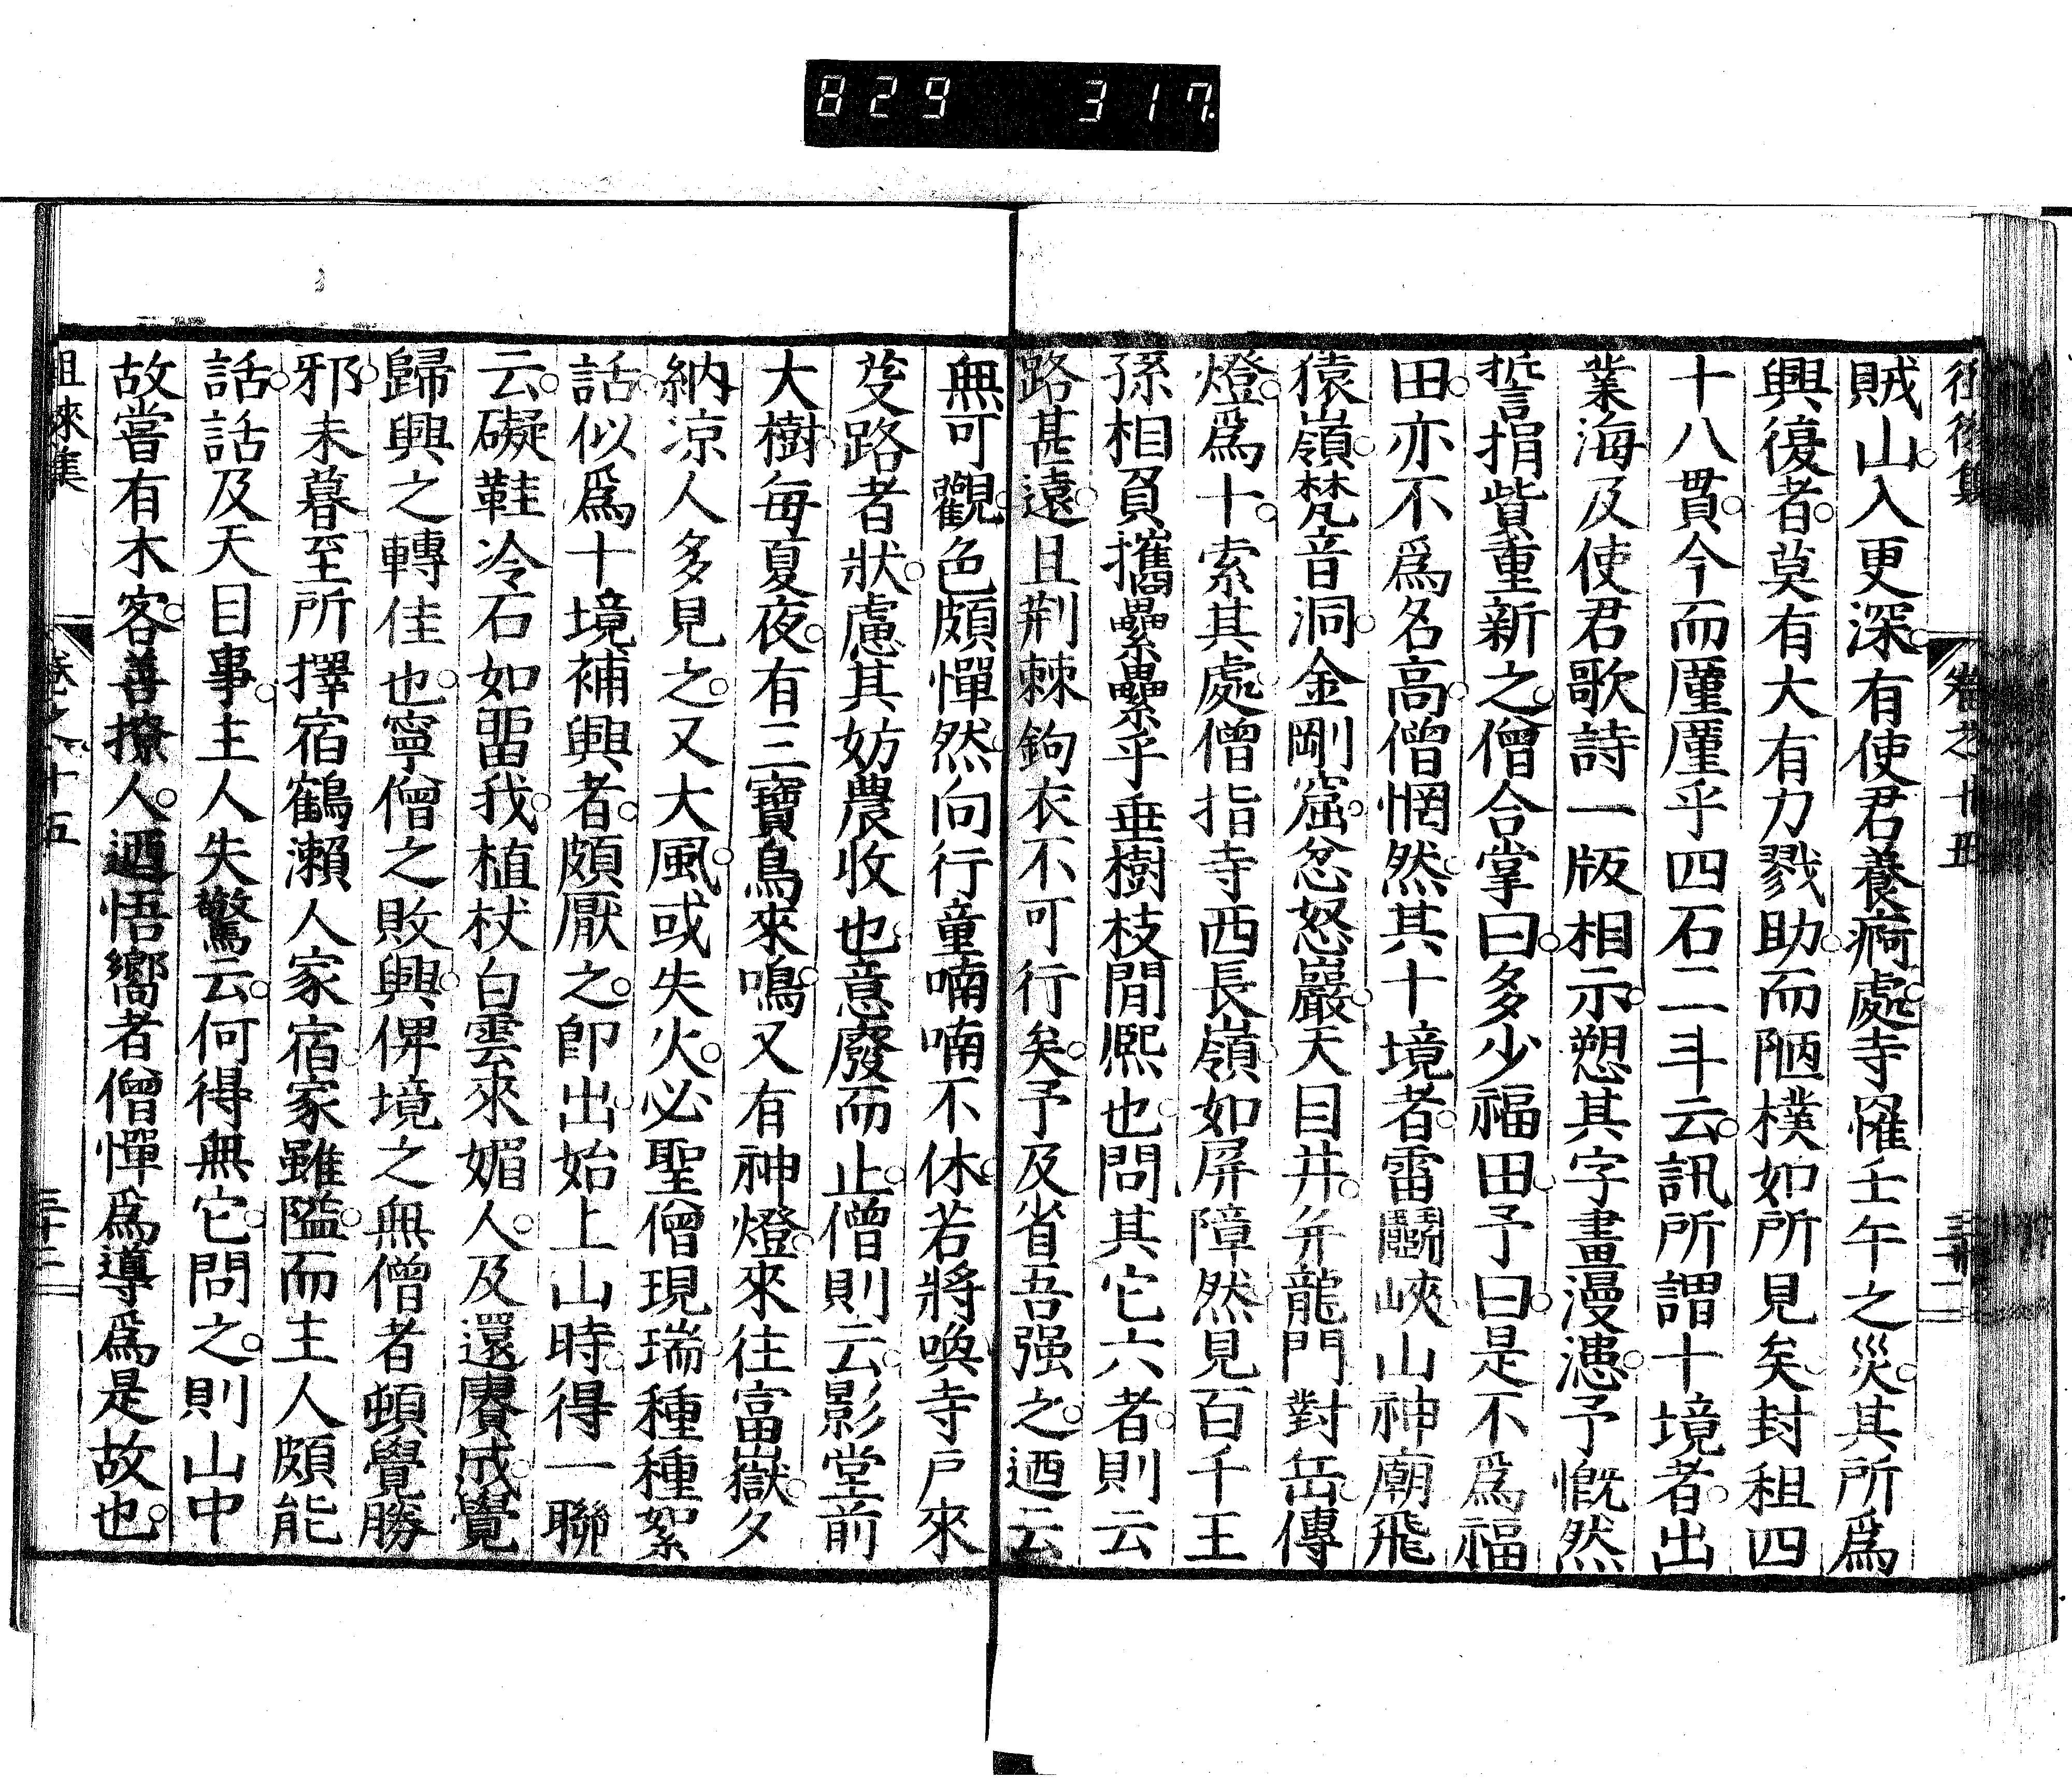 829 317
賊山入更深有使君養痾處寺罹壬午之災其所爲
興復者莫有大有力戮助而陋樸如所見矣封租四
十八貫今而廑廑乎四石二斗云訊所謂十境者出
業海及使君歌詩一版相示愬其字畫漫漶予慨然
誓捐貲重新之僧合掌曰多少福田予曰是不爲福
田亦不爲名高僧惘然其十境者雷鬭峽山神廟飛
猿嶺梵音洞金剛窟忿怒巖天目井并龍門對岳傳
燈爲十索其處僧指寺西長嶺如屏障然見百千王
孫相負攜纍纍乎垂樹枝閒熈也問其它六者則云
路甚遠且荆棘鉤衣不可行矣予及省吾强之迺云
無可觀色頗憚然向行童喃喃不休若將喚寺戶來
芟路者狀慮其妨農收也意廢而止僧則云影堂前
大樹每夏夜有三寶鳥來鳴又有神燈來往富嶽夕
納凉人多見之又大風或失火必聖僧現瑞種種絮
話似爲十境補興者頗厭之卽出始上山時得一聯
云礙鞋冷石如留我植杖白雲來媚人及還賡成覺
歸興之轉佳也寧僧之敗興俾境之無僧者頓覺勝
邪未暮至所擇宿鶴瀨人家宿家雖隘而主人頗能
話話及天目事主人失驚云何得無它問之則山中
故嘗有木客善撩人迺悟嚮者僧憚爲導爲是故也
徂徠集 卷之十五